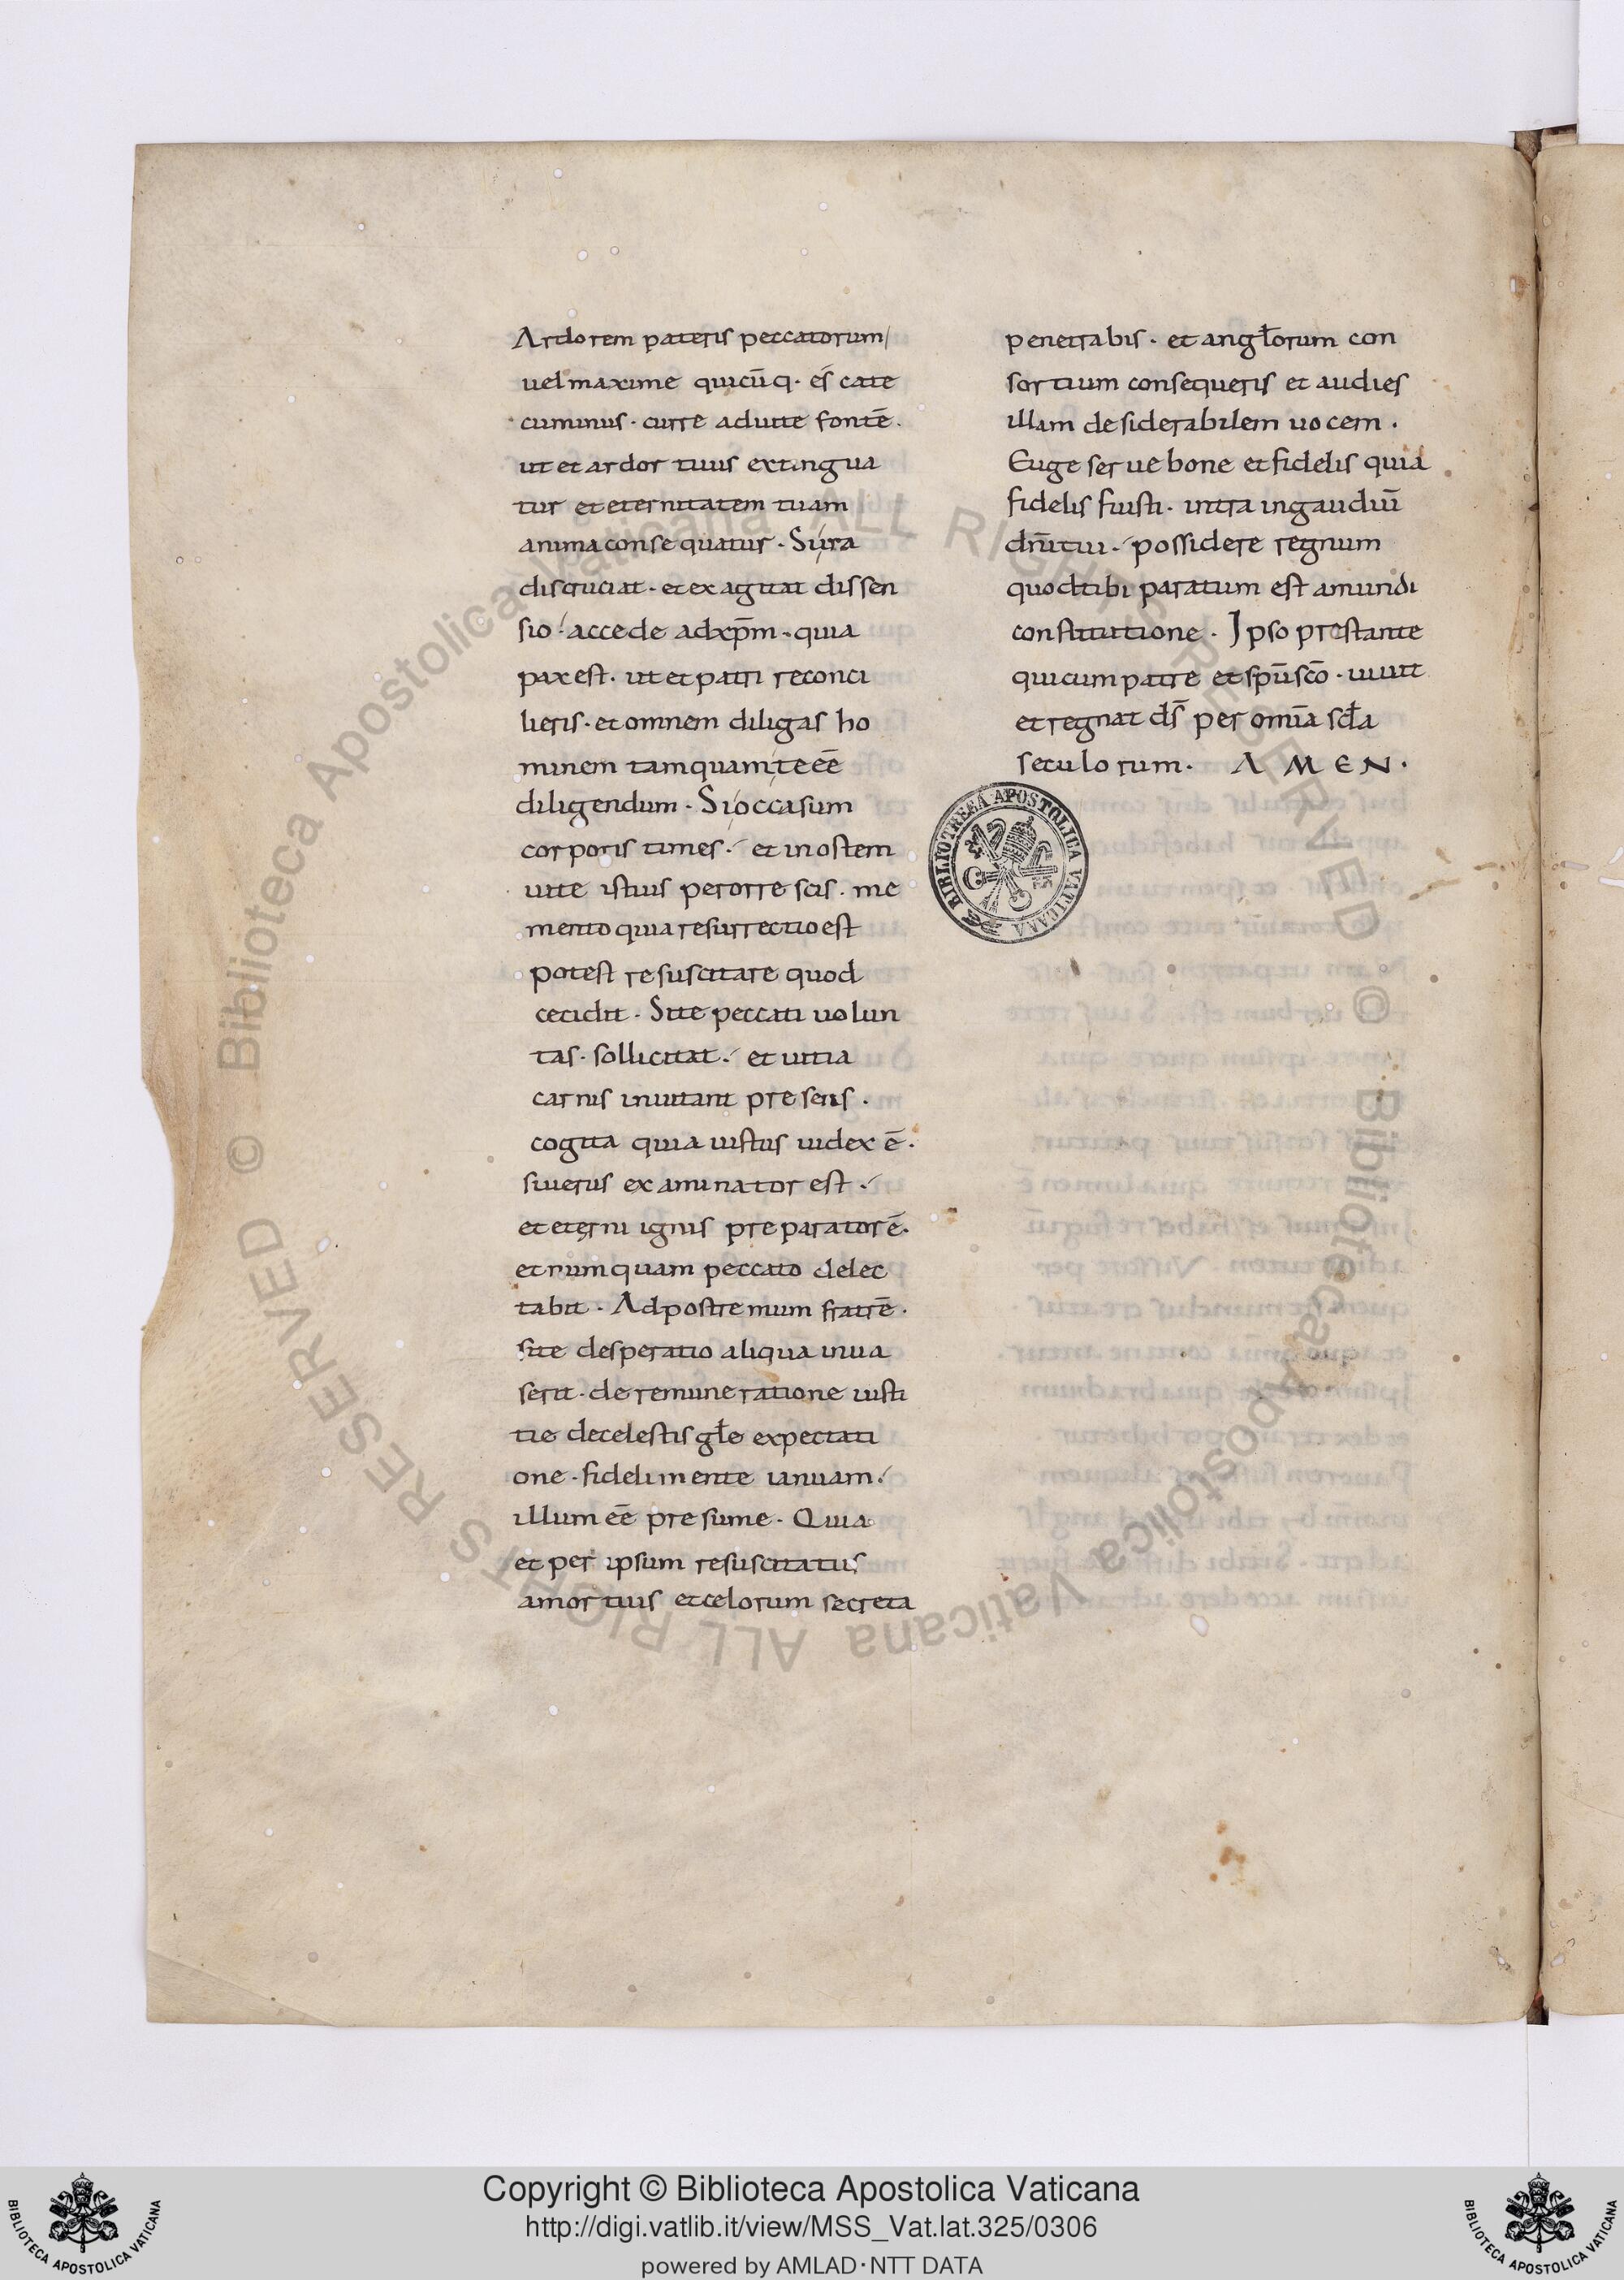 Ardorem pateris peccatorum
uel maxime quicūq· es cate
cuminus· curre ad uite fontē·
ut et ardor tuus extingua
tur et eternitatem tuam
anima consequatur· Si ira
discruciat· et exagitat dissen
sio· accede ad xp̄m· quia
pax est· ut et patri reconci
lieris· et omnem diligas ho
minem tamquam te eē
diligendum· Si occasum
corporis times· et in ostem
uite istius perorrescis· me
mento quia resurrectio est
potest resuscitare quod
cecidit· Si te peccati uolun
tas· sollicitat· et uitia
carnis inuitant presens·
cogita quia iustus iudex ē·
si uerus examinator est·
et eterni ignis preparator ē·
et numquam peccato delec
tabit· Ad postremum fratrē·
si te desperatio aliqua inua
serit· de remuneratione iusti
tie de celestis gl̄e expectati
one· fideli mente ianuam·
illum eē presume· Quia
et per ipsum resuscitatus
a mortuis et celorum secreta
penetrabis· et angl̄orum con
sortium consequeris et audies
illam desiderabilem uocem·
Euge serue bone et fidelis quia
fidelis fuisti· intra in gaudiū
dn̄i tui· possidere regnum
quod tibi paratum est a mundi
constitutione· Ipso prestante
qui cum patre et sp̄u sc̄o· uiuit
et regnat ds̄ per omīa scl̄a
seculorum· AMEN·
BIBLIOTHECA APOSTOLICA VATICANA
© Biblioteca Apostolica Vaticana ALL RIGHTS RESERVED
© Biblioteca Apostolica Vaticana ALL RIGHTS RESERVED
Copyright © Biblioteca Apostolica Vaticana
http://digi.vatlib.it/view/MSS_Vat.lat.325/0306
powered by AMLAD·NTT DATA
BIBLIOTECA APOSTOLICA VATICANA
BIBLIOTECA APOSTOLICA VATICANA